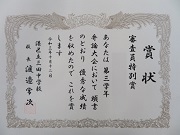 賞状
審査員特別賞
あなたは第三学年
弁論大会において頭書
のとおり優秀な成績
を収めたのでこれを賞
します
令和三年十月三十日
港区立三田中学校
校長 渡邉常次